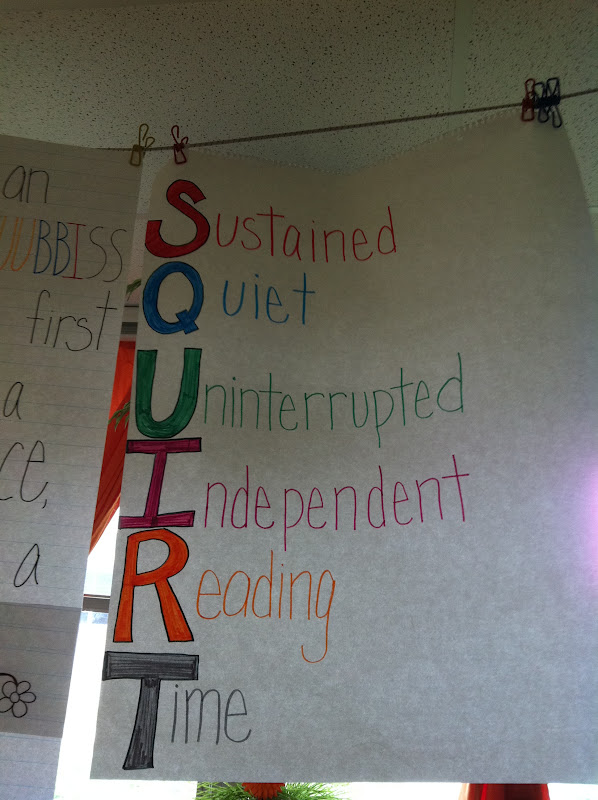 an
UUBBISS
first
a
ce,
a
Sustained
Quiet
Uninterrupted
Independent
Reading
Time